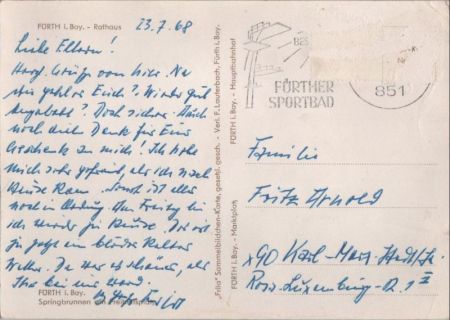 FÜRTH i. Bay. - Rathaus
23.7.68
Liebe Eltern!
Herzl. Grüße von hier. Na
wie geht es Euch? Wieder gut
? Doch sicher. Auch
noch viel Dank für Eure
Geschenke zu mir! Ich habe
mich sehr gefreut, als ich nach
Hause kam. Sonst ist alles
noch in Ordnung. Am Freitag bin
ich wieder zu Hause. Hier ist
ja jetzt ein blödes kaltes
Wetter. Da war es schöner, als
Ihr bei uns ward.
FÜRTH i. Bay.
Springbrunnen am
„Frila" Sammelbildchen-Karte, gesetzl. gesch. - Verl. F. Lauterbach, Fürth i. Bay.
FÜRTH i. Bay. - Hauptbahnhof
FÜRTH i. Bay. - Marktplatz
FÜRTHER
SPORTBAD
851
Familie
Fritz Arnold
x90 Karl-Marx-Stadt
Rosa-Luxemburg